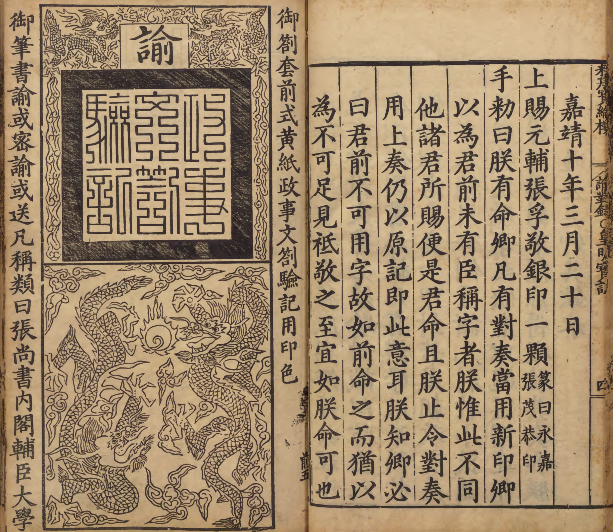 嘉靖十年三月二十日
上賜元輔張孚敬銀印一顆篆曰永嘉張茂恭印
手勑曰朕有命卿凡有對奏當用新印卿
以為君前未有臣稱字者朕惟此不同
他諸君所賜便是君命且朕止令對奏
用上奏仍以原記即此意耳朕知卿必
曰君前不可用字故如前命之而猶以
為不可足見祗敬之至宜如朕命可也
御劄套前式黄紙政事文劄驗記用印色
諭
政事
文劄
驗記
御筆書諭或密諭或送凡稱類曰張尚書内閣輔臣大學